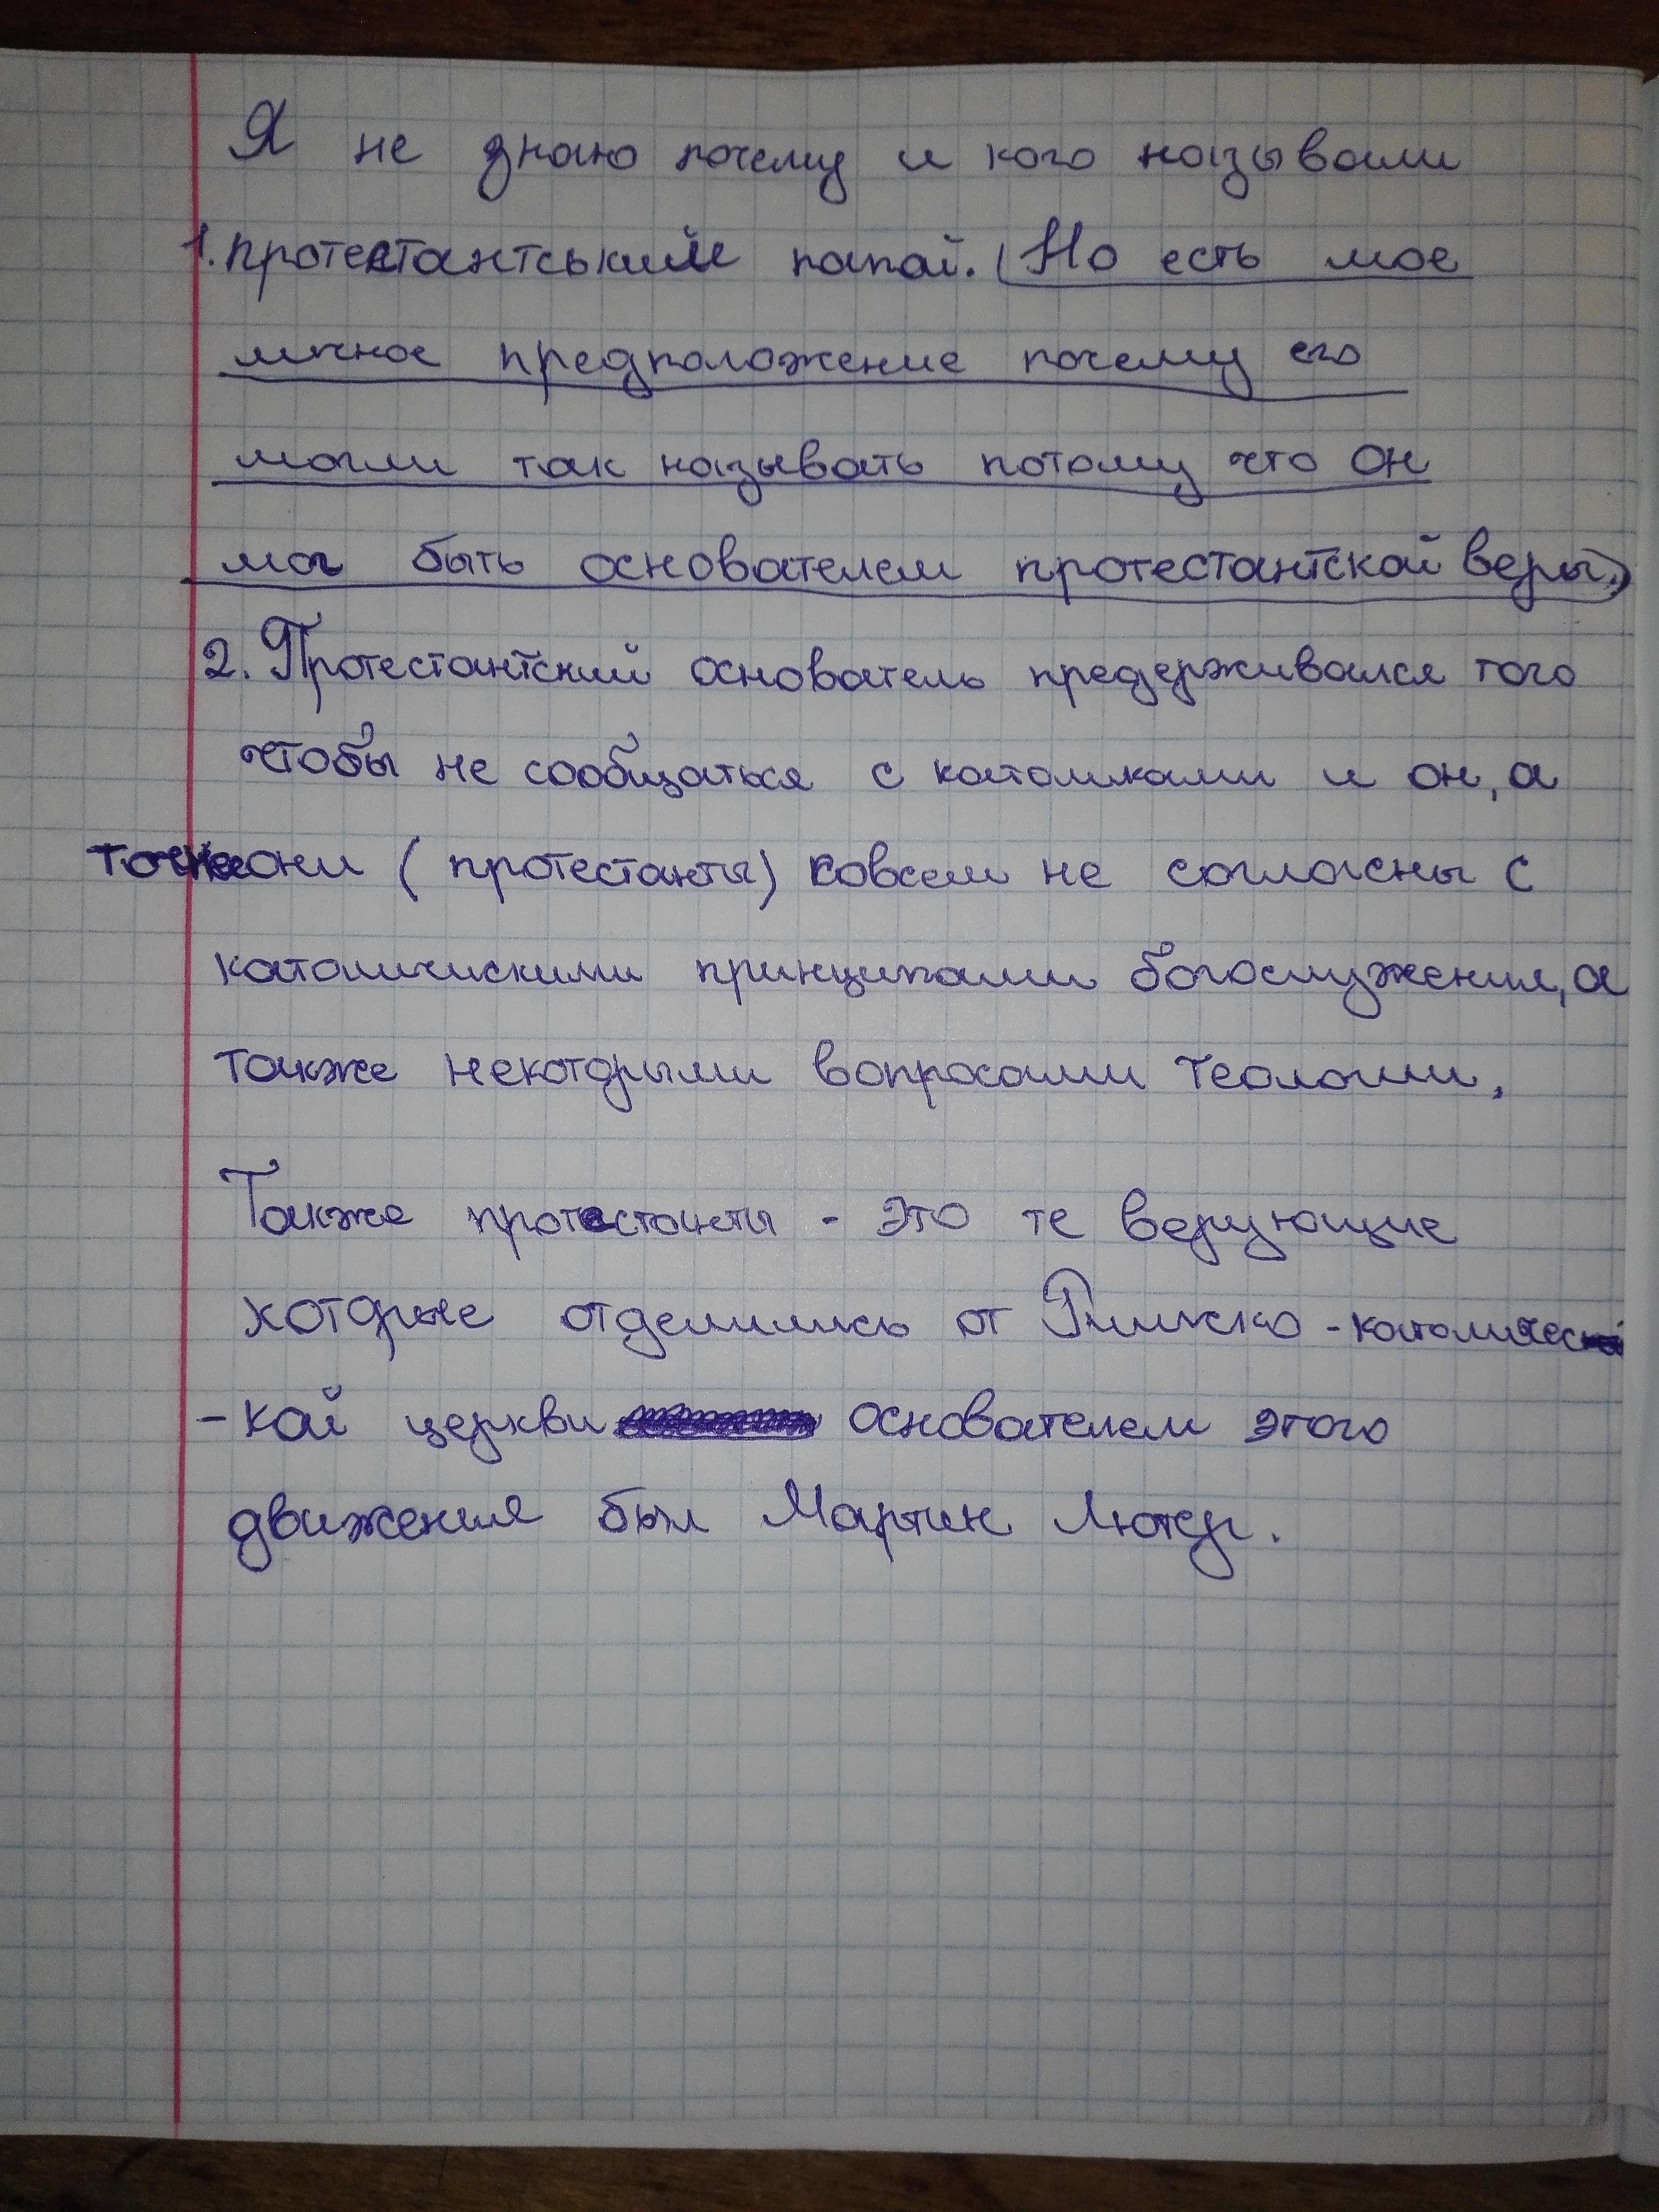 Я не знаю почему и кого называли
1. протестантський папай. (Но есть мое
личное предположение почему его
могли так называть потому что он
мог быть основателем протестантской веры.)
2. Протестантский основатель предерживался того
чтобы не сообщаться с католиками и он, а
точнее они (протестанты) совсем не согласны с
католичискими принципами богослужения, а
также некоторыми вопросами теологии,
Также протестанты - это те верующие
которые отделились от Римско-католичес
-кой церкви основателем этого
движения был Мартин Лютер.